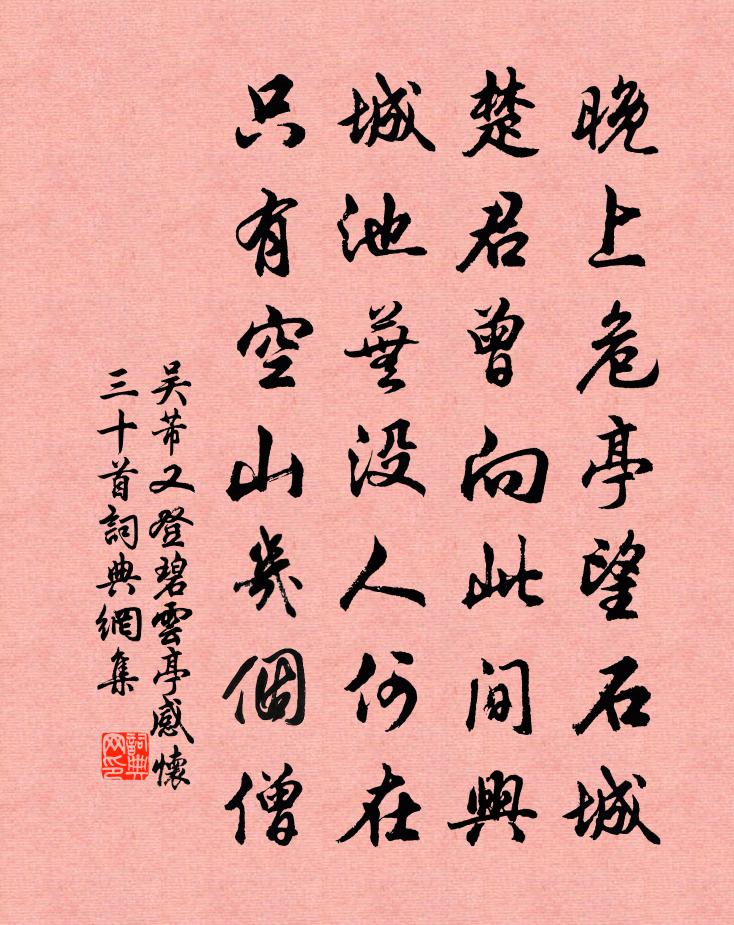 晚上危亭望石城
楚君曾向此间興
城池蕪没人何在
只有空山幾個僧
吴芾又登碧雲亭感懷
三十首詞典網集
詞典
网印